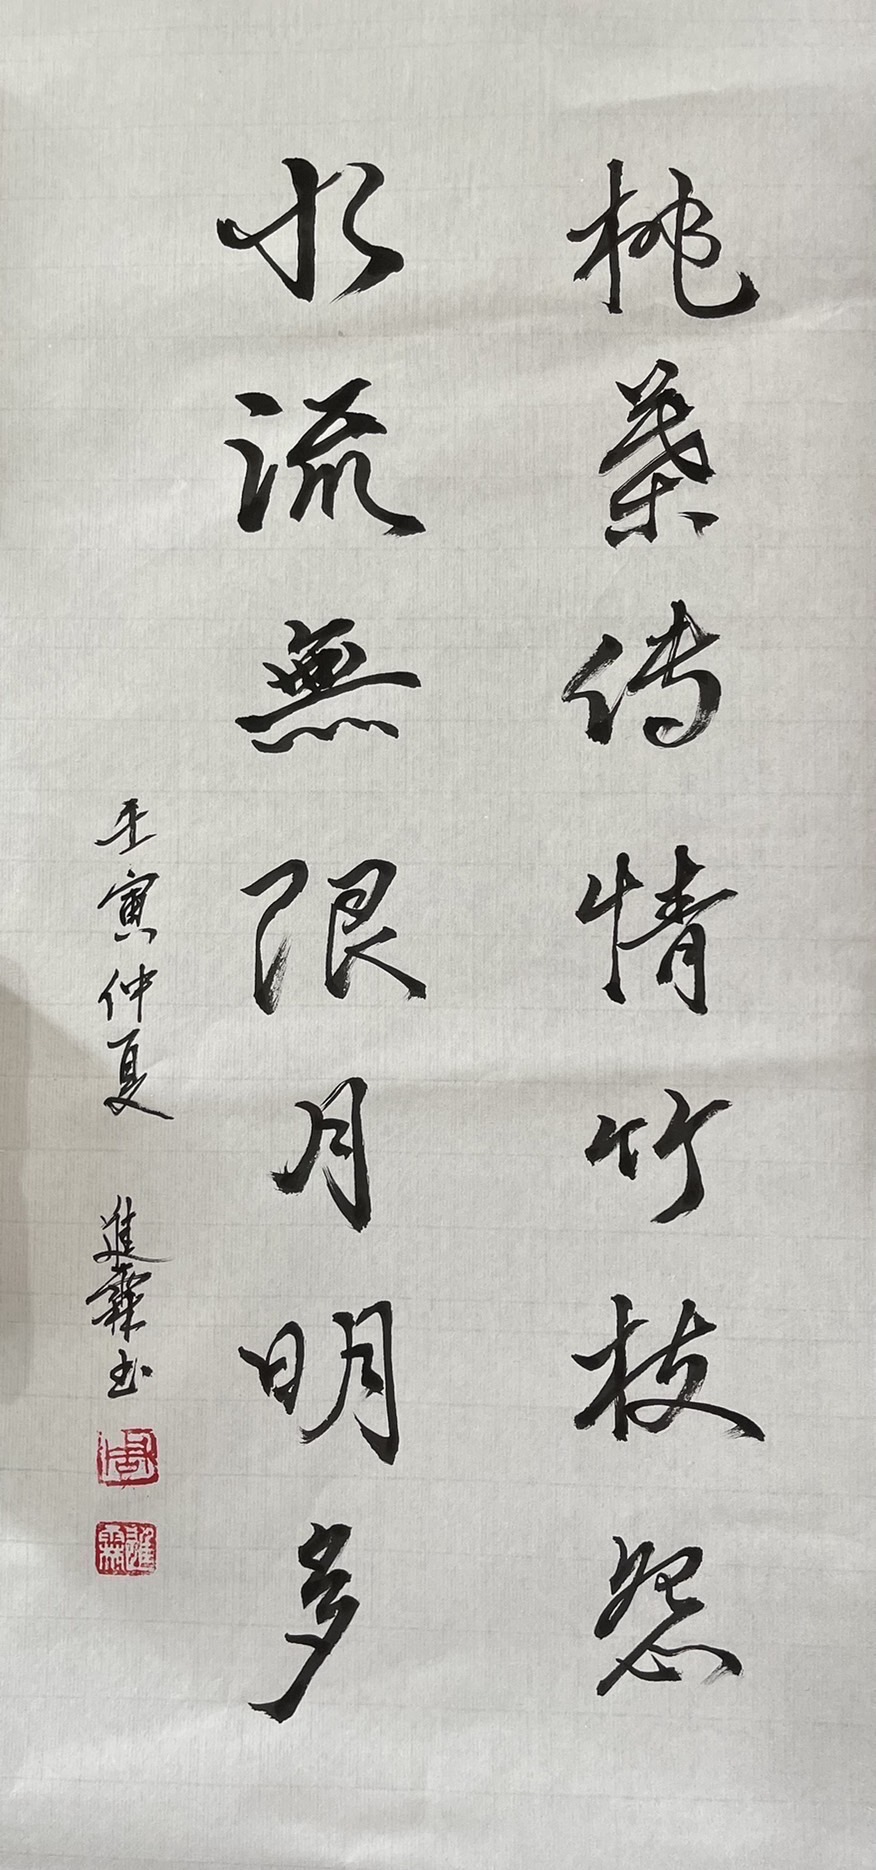 桃葉传情竹枝怨
水流無限月明多
壬寅仲夏 進霖书
周
進霖